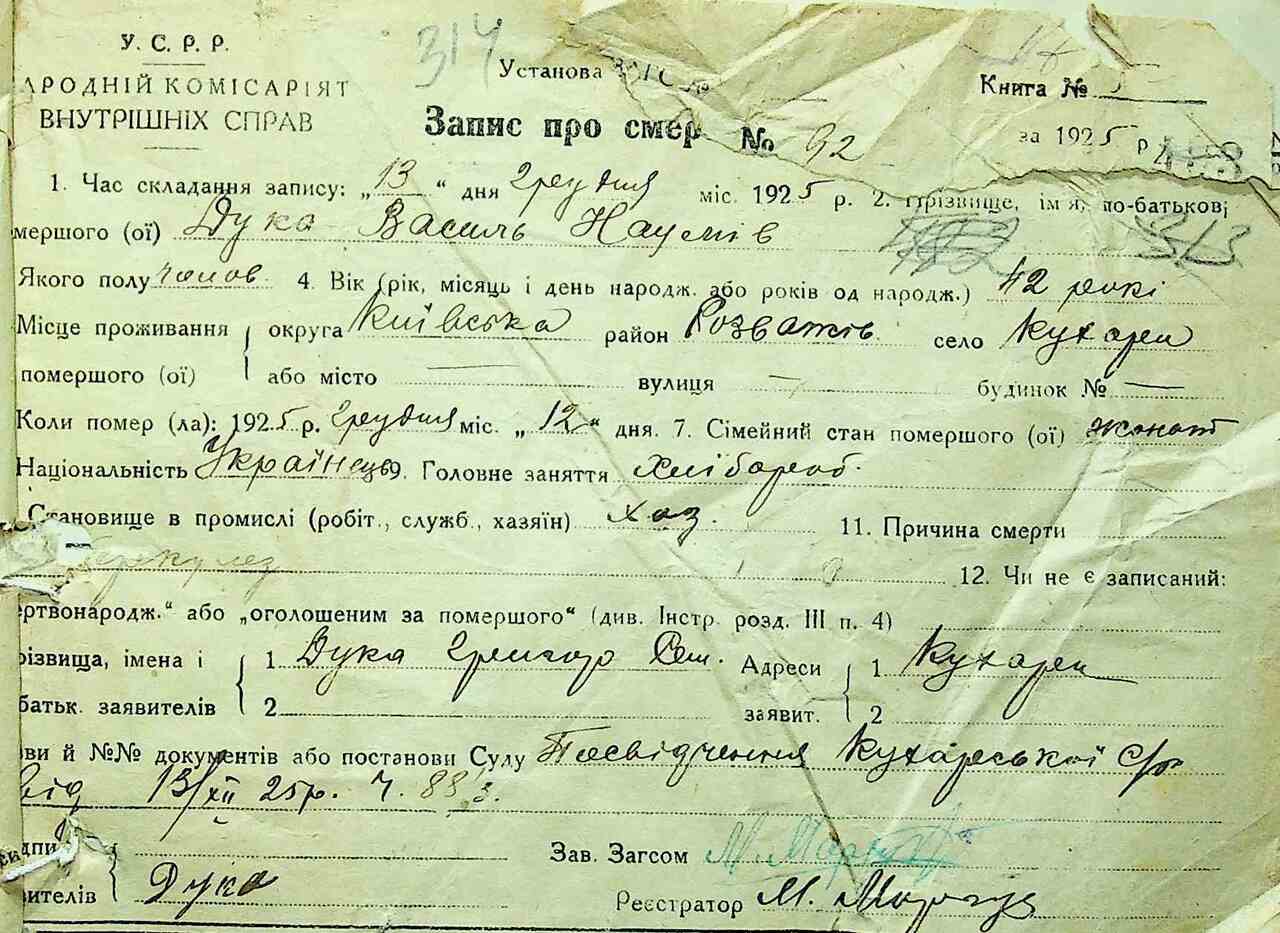 У. С. Р. Р.
АРОДНІЙ КОМІСАРІЯТ
ВНУТРІШНІХ СПРАВ
314
Установа ЗАГС
Книга № 5
Запис про смер № 92
за 1925 р
1. Час складання запису: „13“ дня Грудня міс. 1925 р. 2. Прізвище, ім'я, по-батькові
мершого (ої) Дука Василь Наумів
313
Якого полу чолов. 4. Вік (рік, місяць і день народж. або років од народж.) 42 рокі
Місце проживання округа Київська район Розважів село Кухари
помершого (ої) або місто — вулиця — будинок № —
Коли помер (ла): 1925 р. Грудня міс. „12“ дня. 7. Сімейний стан помершого (ої) жонат
Національність Українець 9. Головне заняття хлібороб.
Становище в промислі (робіт., служб., хазяїн) хаз. 11. Причина смерти
беркулез 12. Чи не є записаний:
ертвонародж.“ або „оголошеним за помершого“ (див. Інстр. розд. III п. 4)
різвища, імена і 1 Дука Григор Адреси 1 Кухари
батьк. заявителів 2 заявит. 2
ви й №№ документів або постанови Суду Посвідчення Кухарської С/р
від 13/XII 25р. Ч. 883.
дпи Зав. Загсом М.
вителів Дука Реєстратор М.